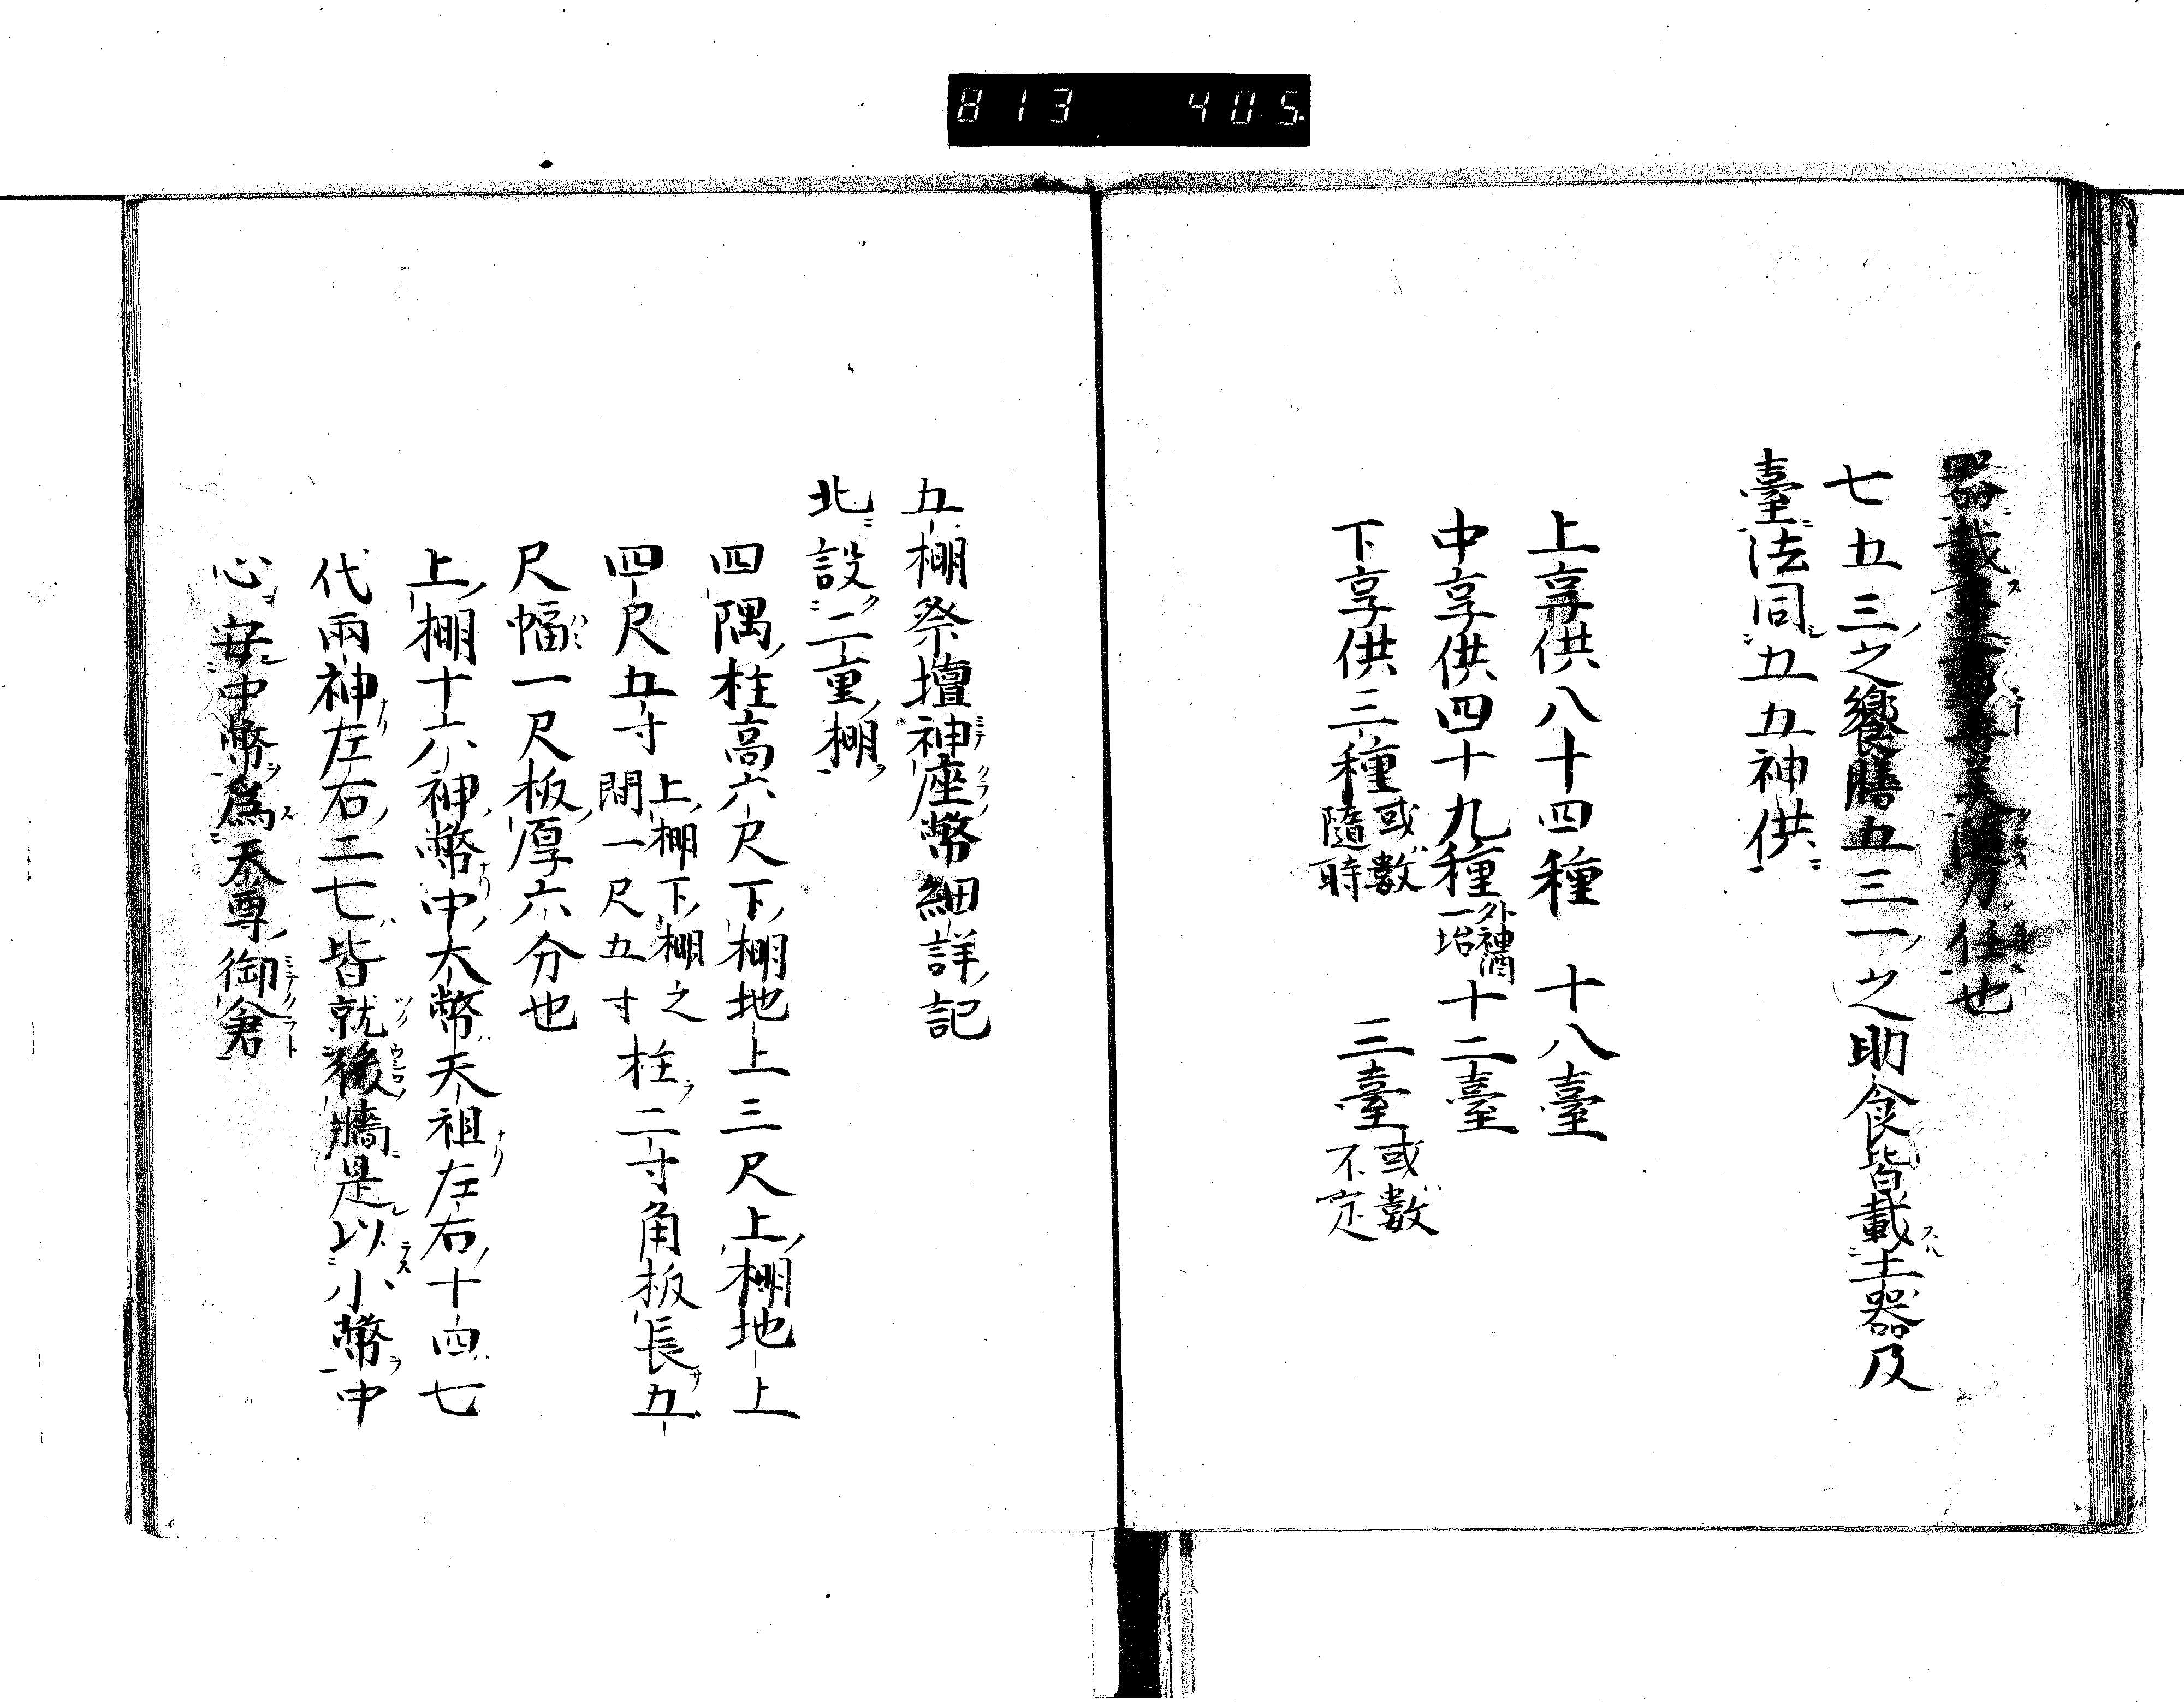 813 405
器載臺専美隨力任也
七五三之饗膳五三一之助食皆載土器及
臺法同五五神供
上享供八十四種 十八臺
中享供四十九種外神酒一坩十二臺
下享供三種或數隨時 三臺或數不定
五棚祭壇神座幣細詳記
北設二重棚
四隅柱高六尺下棚地上三尺上棚地上
四尺五寸上棚下棚之間一尺五寸柱二寸角板長五
尺幅一尺板厚六分也
上棚十六神幣中大幣天祖左右十四七
代兩神左右二七皆就後牆是以小幣中
心安中幣為天尊御倉